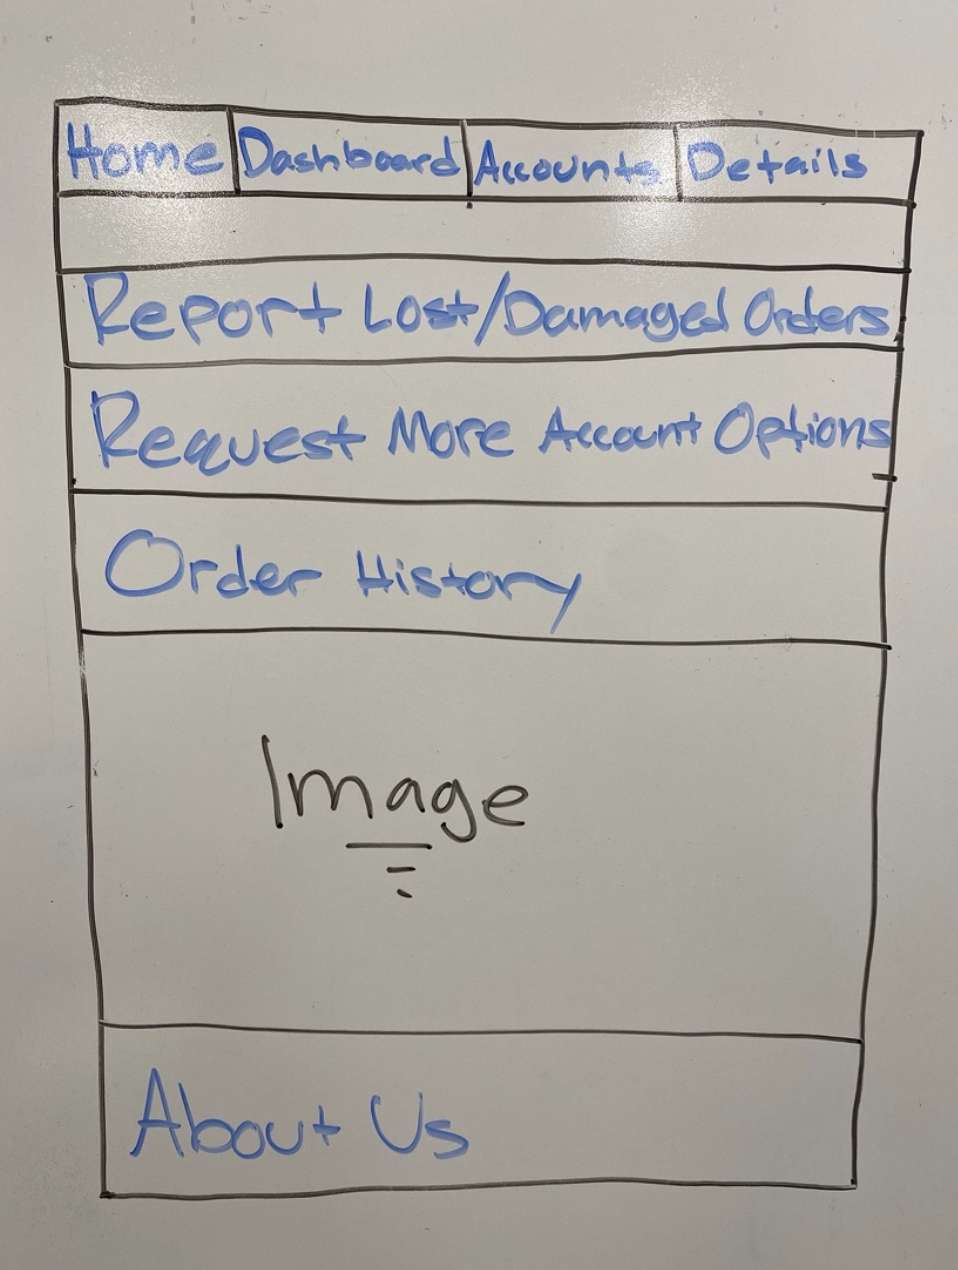 Home Dashboard Accounts Details
Report Lost/Damaged Orders
Request More Account Options
Order History
Image
About Us